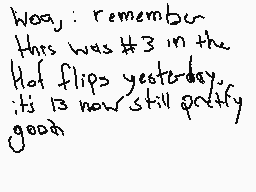 Woa,: remember
this was #3 in the
Hot flips yesterday,
it's 13 now still pretty
good